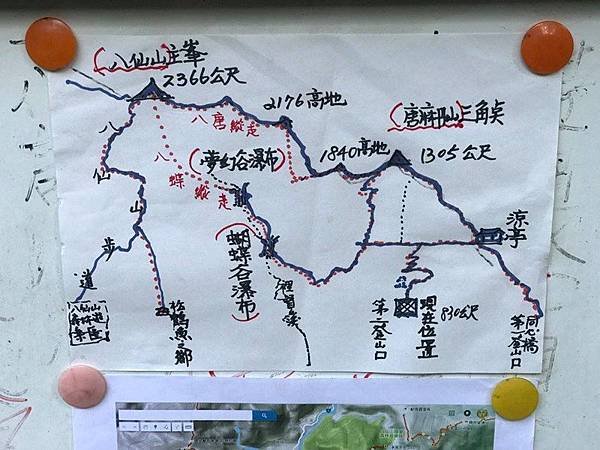 八仙山主峯
2366公尺
2176高地
唐麻丹山三角点
八唐縱走
(夢幻谷瀑布)
1840高地
1305公尺
八蝶縱走
八仙山步道
涼亭
(蝴蝶谷瀑布)
松鶴魚ㄉ鄉
裡冷溪
第一登山口
現在位置
830公尺
同心橋
第一登山口